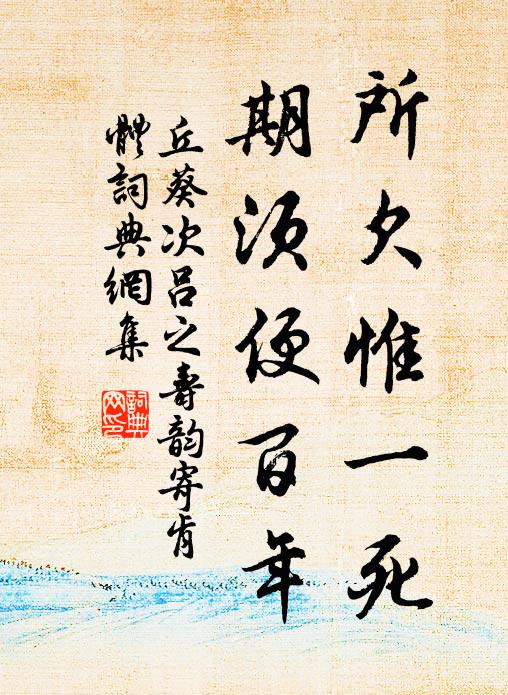 所欠惟一死
期须便百年
丘葵次吕之寿韵寄肯
體詞典網集
詞典
网印